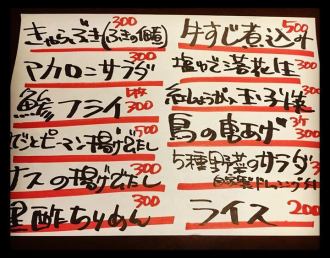 きゃらぶき(ふきの佃煮) 300
マカロニサラダ 300
鯵フライ 1枚 300
なすとピーマン揚げだし 500
ナスの揚げだし 300
黒酢ちりめん 300
牛すじ煮込み 500
塩ゆで落花生 300
紅しょうが入玉子焼 300
鳥の唐あげ 3ケ 300
5種野菜のサラダ
自家製ドレッシング付
ライス 200